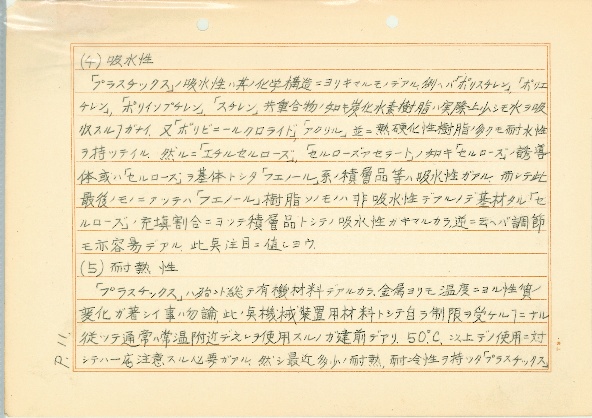 (4) 吸水性
「プラスチックス」ノ吸水性ハ其ノ化学構造ニヨリキマルモノデアル. 例ヘバ「ポリスチレン」, 「ポリエ
チレン」, 「ポリイソブチレン」, 「スチレン」共重合物ノ如キ炭化水素樹脂ハ実際上少シモ水ヲ吸
収スルヿガナイ. 又「ポリビニールクロライド」, 「アクリル」, 並ニ熱硬化性樹脂ノ多クモ耐水性
ヲ持ツテイル. 然ルニ「エチルセルローズ」, 「セルローズアセテート」ノ如キ「セルローズ」ノ誘導
体或ハ「セルローズ」ヲ基体トシタ「フエノール」系ノ積層品等ハ吸水性ガアル. 而シテ此
最後ノモノニアツテハ「フエノール」樹脂ソノモノハ非吸水性デアルノデ基材タル「セ
ルローズ」ノ充填割合ニヨツテ積層品トシテノ吸水性カキマルカラ, 逆ニ云ヘバ調節
モ亦容易デアル. 此点注目ニ値シヨウ.
(5) 耐熱性
「プラスチックス」ハ殆ンド総テ有機材料デアルカラ, 金属ヨリモ温度ニヨル性質ノ
変化ガ著シイ事ハ勿論此ノ点機械装置用材料トシテ自ラ制限ヲ受ケルヿニナル
従ツテ通常ハ常温附近デ之レヲ使用スルノガ建前デアリ, 50℃. 以上デノ使用ニ対
シテハ一応注意スル必要ガアル. 然シ最近多少ノ耐熱, 耐冷性ヲ持ツタ「プラスチックス」